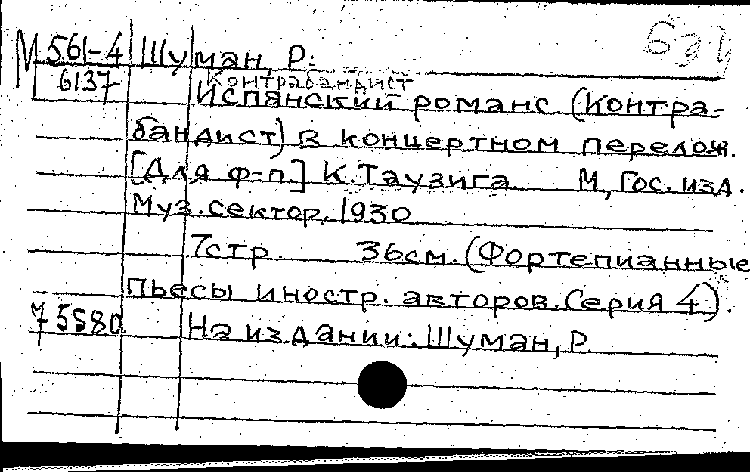 М 561-4 Шуман, Р.
6137 Контрабандист
Испанский романс (Контра-
бандист) в концертном перелож.
[Для ф-п.] К. Таузига М, Гос. изд.
Муз. сектор, 1930
7стр 36см. (Фортепианные
пьесы иностр. авторов. Серия 4).
На издании: Шуман, Р.